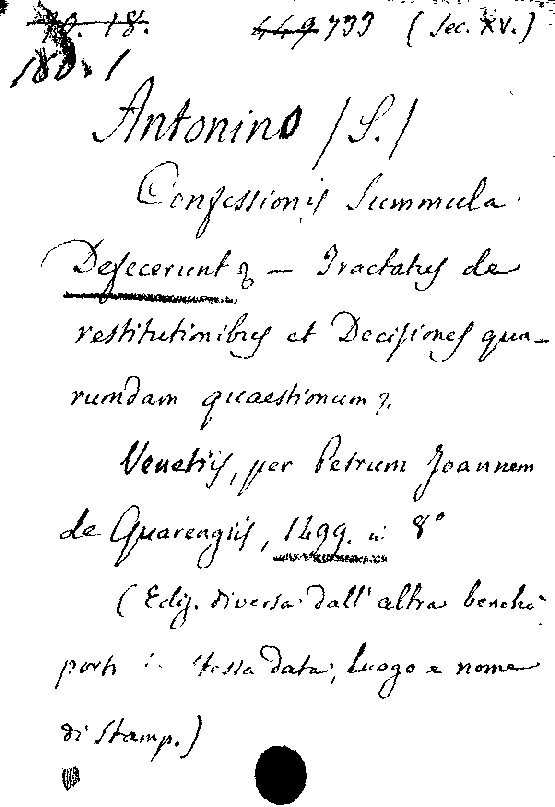 18. 449 733 (Sec. XV.)
180.1
Antonino (S.)
Confessionis Summula
Defecerunt &. — Tractatus de
restitutionibus et Decisiones qua-
rumdam quaestionum &.
Venetiis, per Petrum Joannem
de Quarengiis, 1499. in 8°
(Ediz. diversa dall' altra benchè
porti stessa data, luogo e nome
di Stamp.)